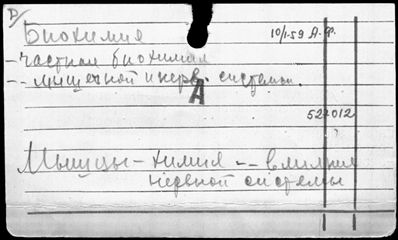 D/
Биохимия 10/1-59 А.Ф.
- частная биохимия
-- мышечной и нерв. системы.
А
527012
Мышцы - химия -- влияния
нервной системы